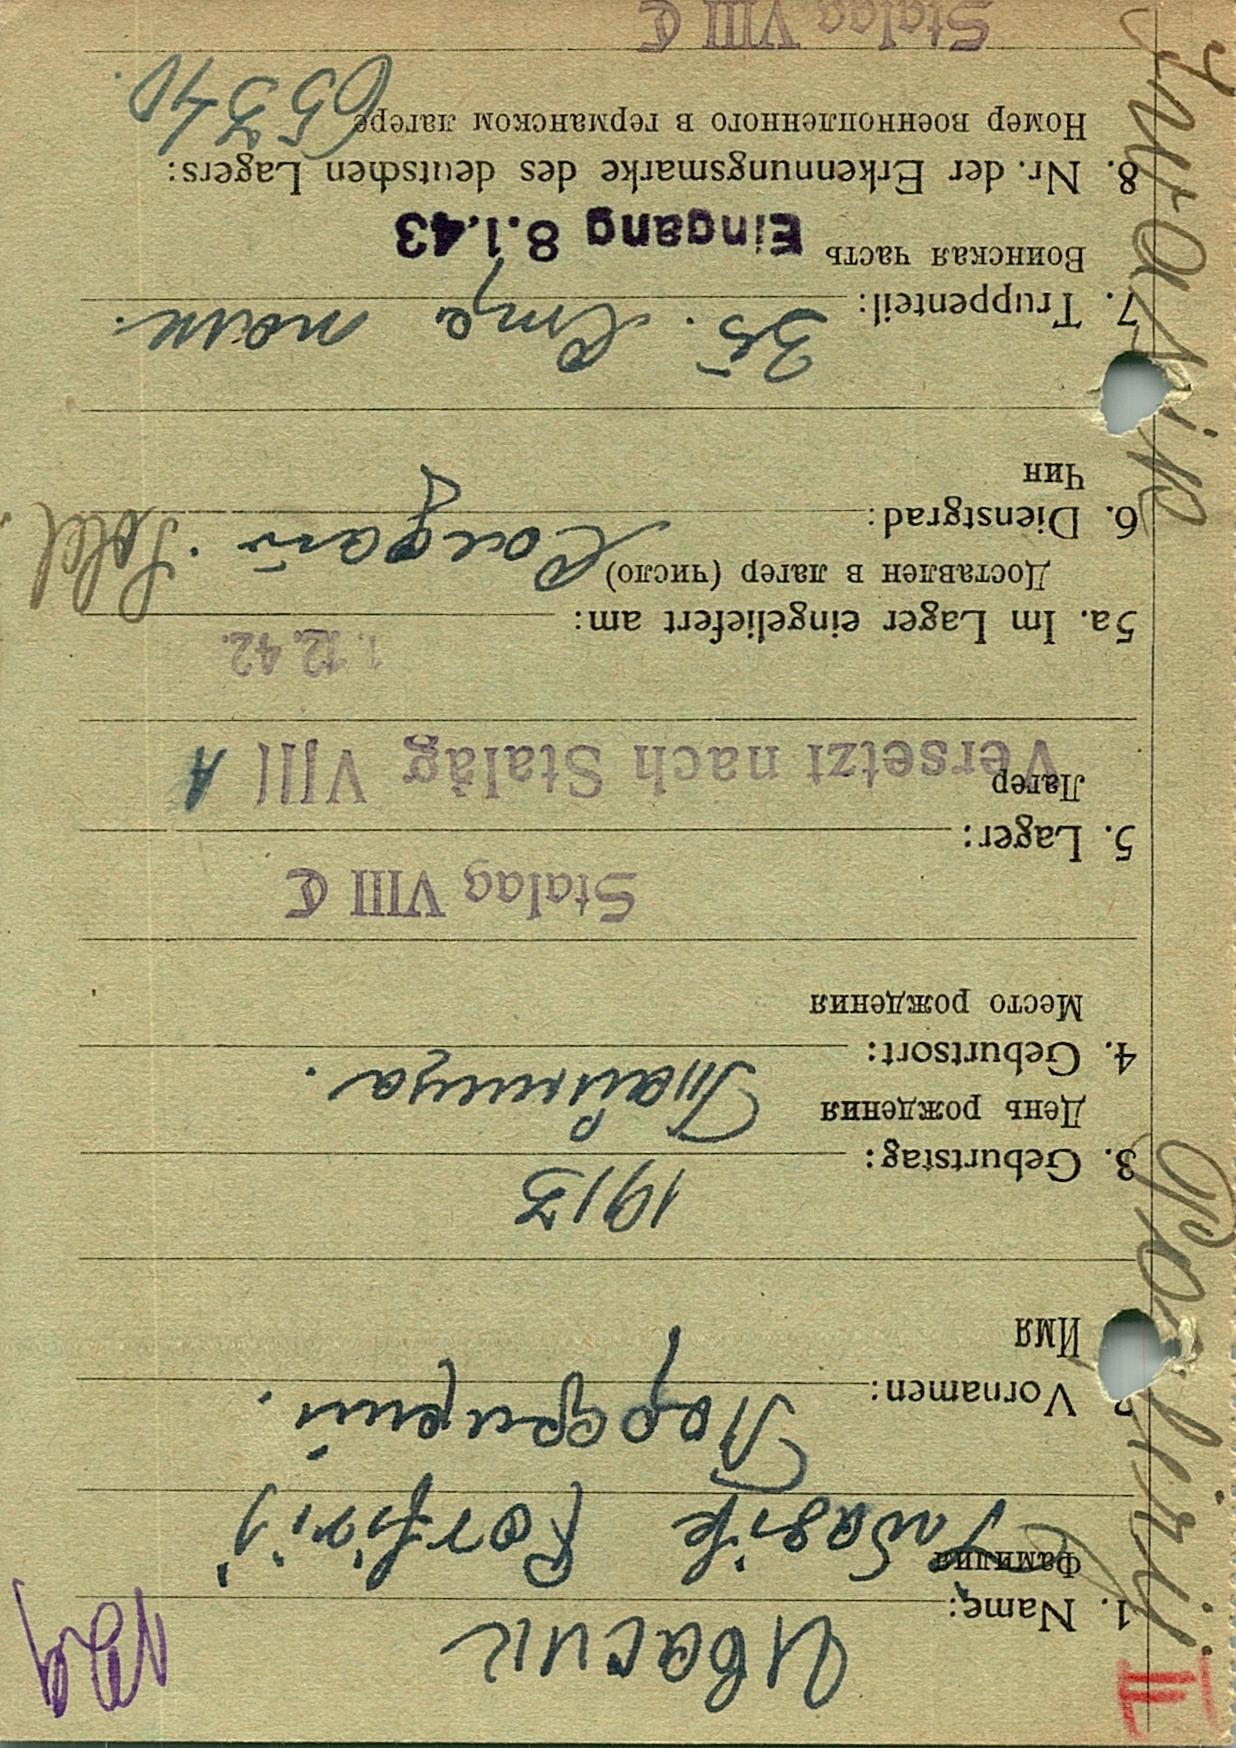 III
Iwasik Porfirij
1. Name: Ивасик
Фамилия
Iwasik Porfirij
2. Vornamen: Порфирий.
Имя
1913
3. Geburtstag:
День рождения
4. Geburtsort:
Место рождения
Stalag VIII C
5. Lager:
Лагер
Versetzt nach Stalag VIII A
1. 12. 42.
5a. Im Lager eingeliefert am:
Доставлен в лагер (число)
6. Dienstgrad: Солдат. Sold.
Чин
7. Truppenteil: 35.
Воинская часть Eingang 8.1.43
8. Nr. der Erkennungsmarke des deutschen Lagers:
Номер военнопленного в германском лагере 65340.
Stalag VIII C